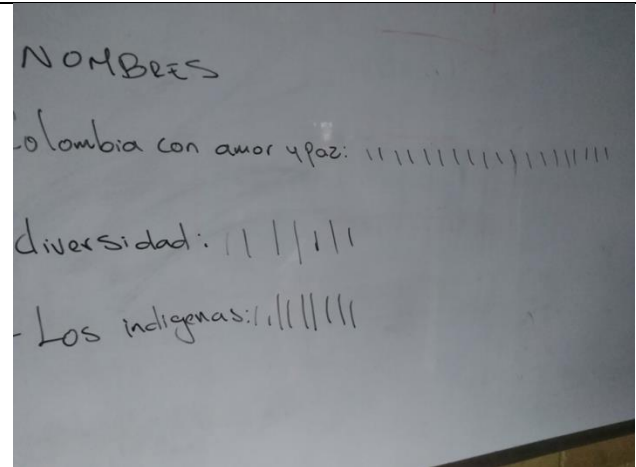 NOMBRES
Colombia con amor y paz: ||||||||||||||||||
diversidad: ||||||||
- Los indigenas: ||||||||||